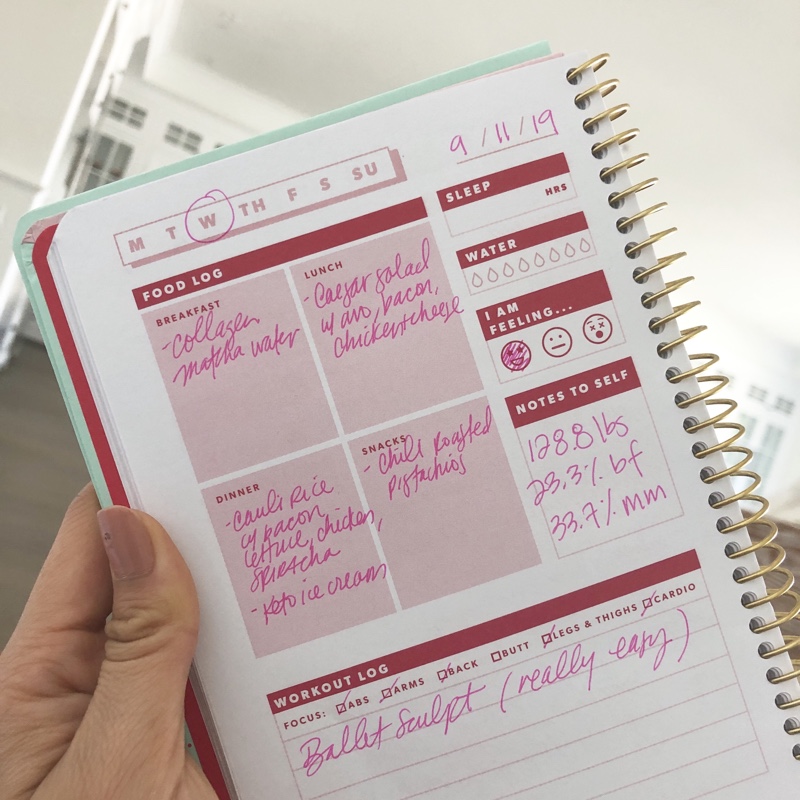 9/11/19
M T W TH F S SU
SLEEP
HRS
WATER
I AM
FEELING...
NOTES TO SELF
128.8 lbs
23.3% bf
33.7% mm
FOOD LOG
BREAKFAST
- Collagen
matcha water
LUNCH
- Caesar salad
w/ avo, bacon,
chicken + cheese
DINNER
- Cauli Rice
w/ bacon
lettuce, chicken,
SRIRACHA
- Keto ice cream
SNACKS
- Chili Roasted
Pistachios
WORKOUT LOG
FOCUS: ABS ARMS BACK BUTT LEGS & THIGHS CARDIO
Ballet Sculpt (really easy)